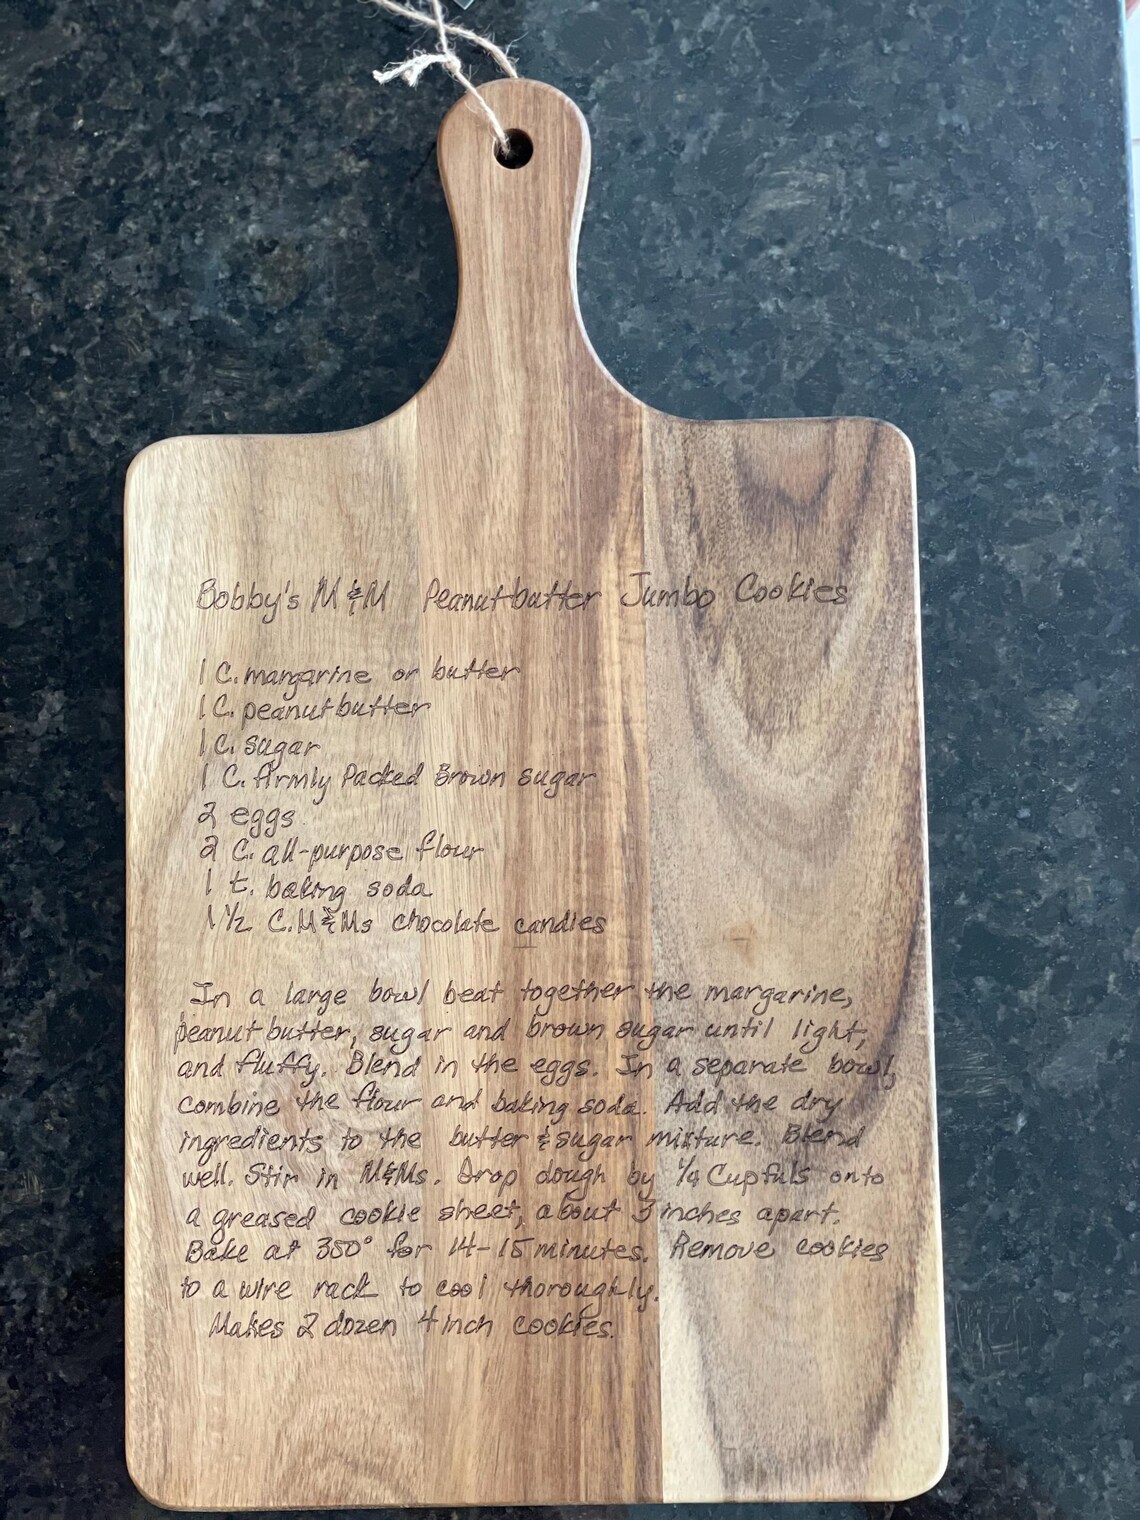 Bobby's M&M Peanutbutter Jumbo Cookies
1 C. margarine or butter
1 C. peanutbutter
1 C. sugar
1 C. firmly Packed Brown sugar
2 eggs
2 C. all-purpose flour
1 t. baking soda
1 1/2 C. M&Ms chocolate candies
In a large bowl beat together the margarine,
peanut butter, sugar and brown sugar until light,
and fluffy. Blend in the eggs. In a separate bowl,
combine the flour and baking soda. Add the dry
ingredients to the butter & sugar mixture. Blend
well. Stir in M&Ms. Drop dough by 1/4 Cupfuls onto
a greased cookie sheet, about 3 inches apart.
Bake at 350° for 14-15 minutes. Remove cookies
to a wire rack to cool thoroughly.
Makes 2 dozen 4 inch cookies.